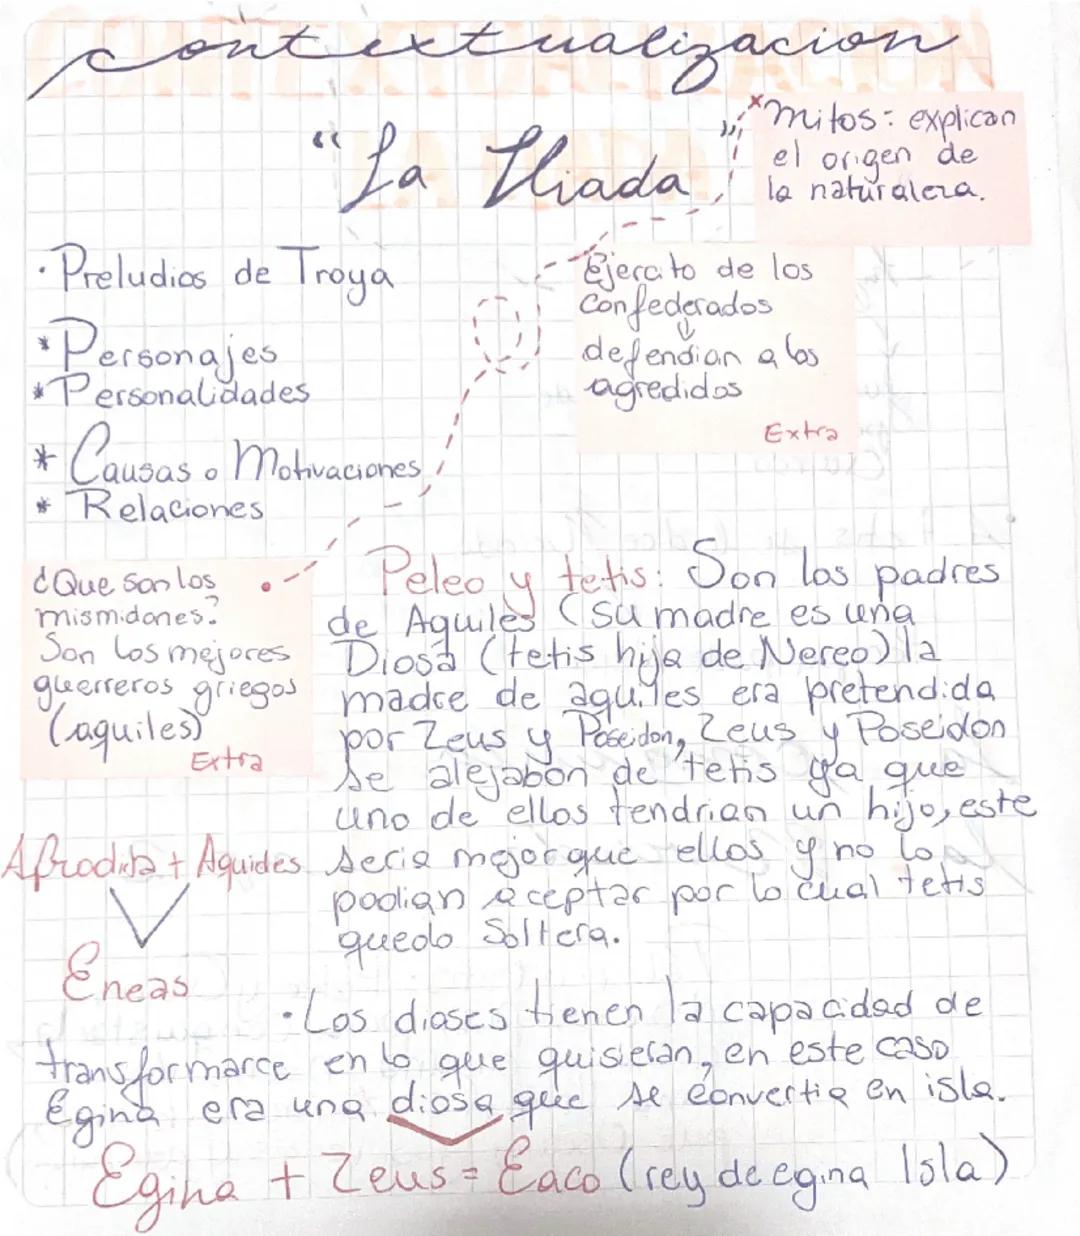 contextualizacion
"La Iliada"
*mitos: explican
el origen de
la naturaleza.
Ejercito de los
Confederados
↓
defendian a los
agredidos
Extra
· Preludios de Troya
* Personajes
* Personalidades
* Causas o Motivaciones
* Relaciones
¿Que son los
mismidones?
Son los mejores
guerreros griegos
(aquiles)
Extra
Peleo y tetis: Son los padres
de Aquiles (su madre es una
Diosa (tetis hija de Nereo) la
madre de aquiles era pretendida
por Zeus y Poseidon, Zeus y Poseidon
se alejabon de tetis ya que
uno de ellos tendrian un hijo, este
seria mejor que ellos y no lo
podian aceptar por lo cual tetis
quedo Soltera.
Afrodita + Aquides
Eneas
· Los dioses tienen la capacidad de
transformarce en lo que quisieran, en este caso
Egina era una diosa que se convertia en isla.
Egina + Zeus = Eaco (rey de egina Isla)